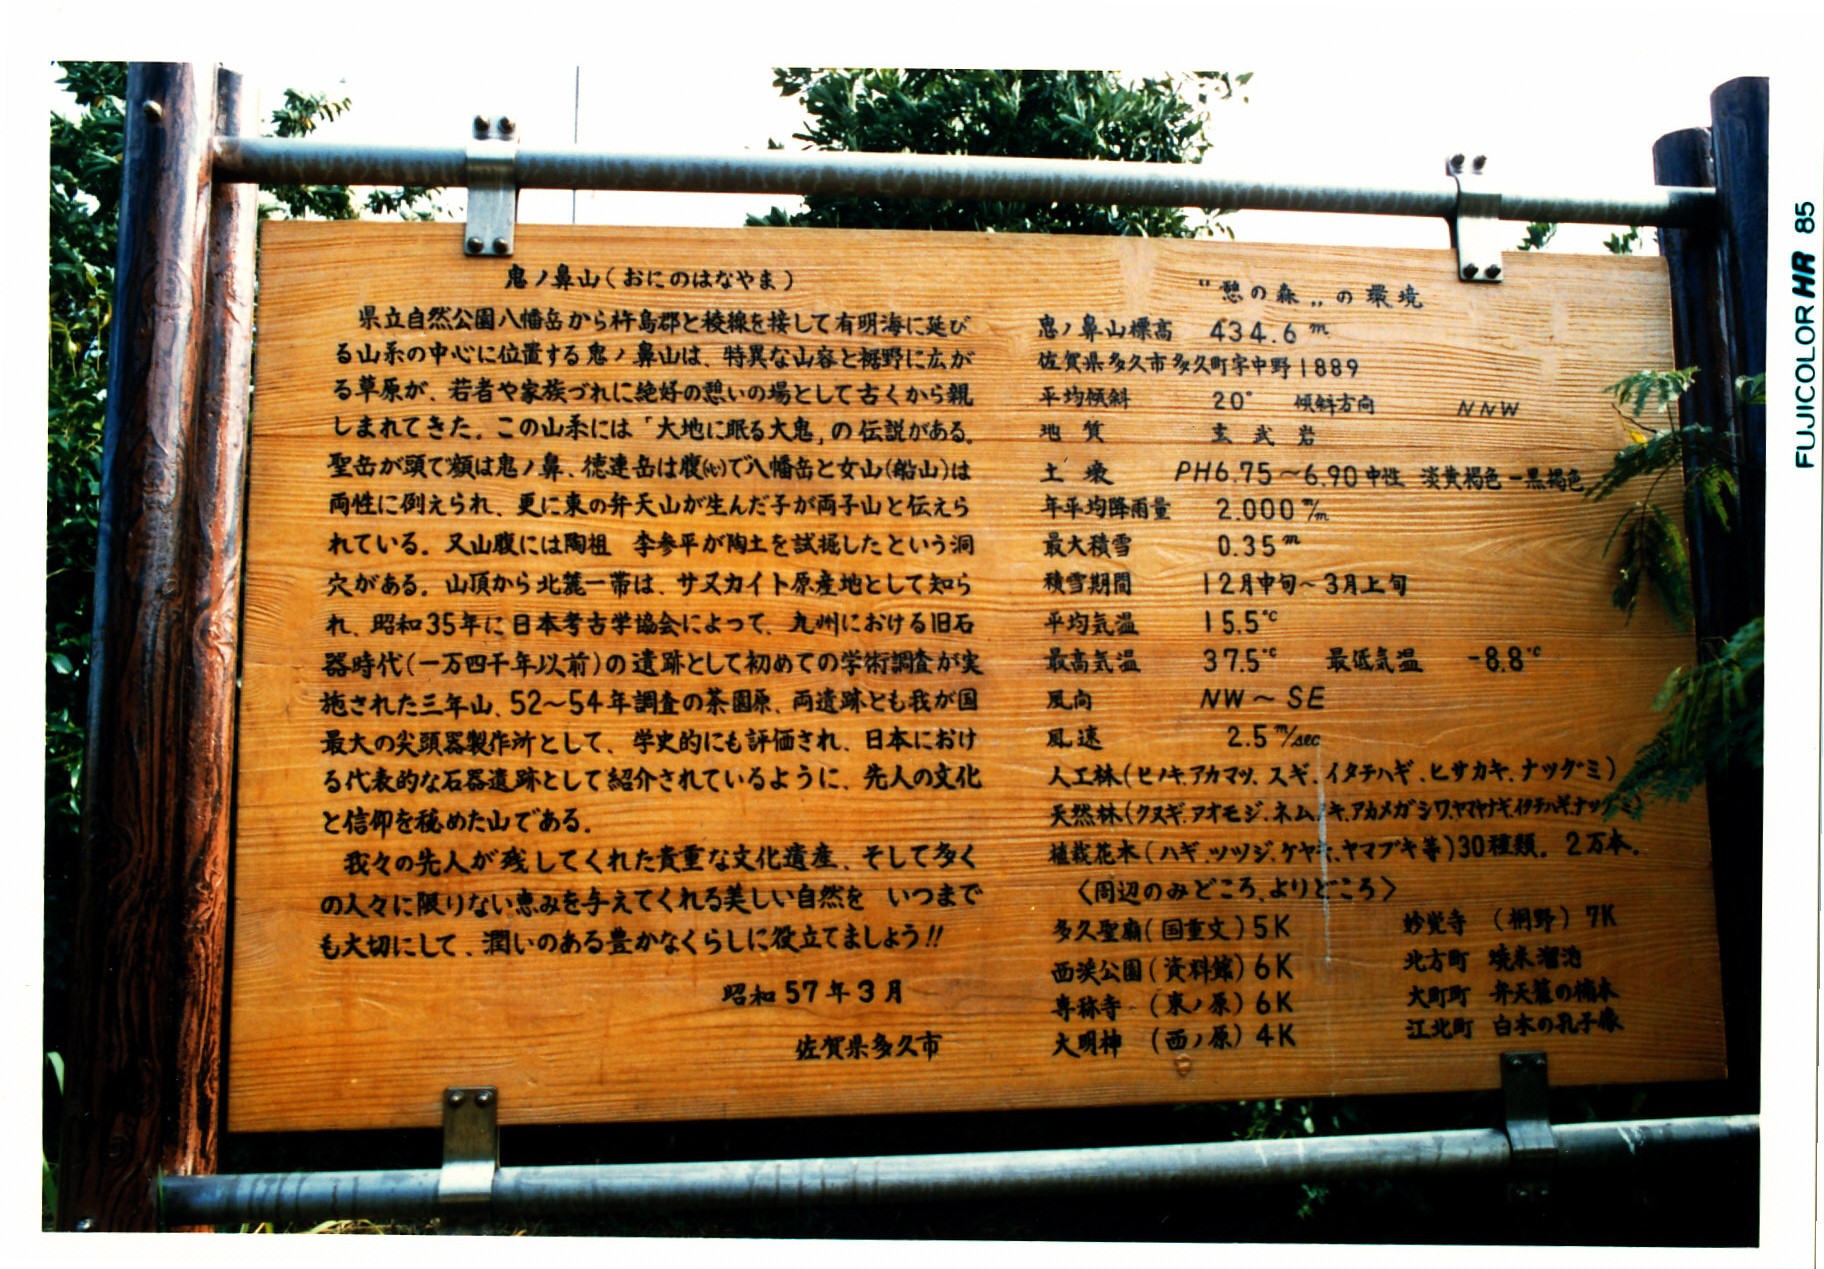 鬼ノ鼻山(おにのはなやま)
県立自然公園八幡岳から杵島郡と稜線を接して有明海に延び
る山系の中心に位置する鬼ノ鼻山は、特異な山容と裾野に広が
る草原が、若者や家族づれに絶好の憩いの場として古くから親
しまれてきた。この山系には「大地に眠る大鬼」の伝説がある。
聖岳が頭で顔は鬼ノ鼻、徳連岳は腹(心)で八幡岳と女山(船山)は
両性に例えられ、更に東の弁天山が生んだ子が両子山と伝えら
れている。又山腹には陶祖 李参平が陶土を試掘したという洞
穴がある。山頂から北麓一帯は、サヌカイト原産地として知ら
れ、昭和35年に日本考古学協会によって、九州における旧石
器時代(一万四千年以前)の遺跡として初めての学術調査が実
施された三年山、52〜54年調査の茶園原、両遺跡とも我が国
最大の尖頭器製作所として、学史的にも評価され、日本におけ
る代表的な石器遺跡として紹介されているように、先人の文化
と信仰を秘めた山である。
我々の先人が残してくれた貴重な文化遺産、そして多く
の人々に限りない恵みを与えてくれる美しい自然を いつまで
も大切にして、潤いのある豊かなくらしに役立てましょう!!
昭和57年3月
佐賀県多久市
"憩の森„の環境
鬼ノ鼻山標高 434.6m
佐賀県多久市多久町字中野1889
平均傾斜 20° 傾斜方向 NNW
地質 玄武岩
土壌 PH6.75〜6.90中性 淡黄褐色-黒褐色
年平均降雨量 2.000m/m
最大積雪 0.35m
積雪期間 12月中旬〜3月上旬
平均気温 15.5℃
最高気温 37.5℃ 最低気温 -8.8℃
風向 NW〜SE
風速 2.5m/sec
人工林(ヒノキ.アカマツ.スギ.イタチハギ.ヒサカキ.ナツグミ)
天然林(クヌギ.アオモジ.ネムノキ.アカメガシワ.ヤマヤナギ.イタチハギ.ナツグミ)
植栽花木(ハギ.ツツジ.ケヤキ.ヤマブキ等)30種類。2万本。
〈周辺のみどころ、よりどころ〉
多久聖廟(国重文)5K 妙覚寺 (桐野)7K
西渓公園(資料館)6K 北方町 焼米溜池
専称寺 (東ノ原)6K 大町町 弁天麓の楠本
大明神 (西ノ原)4K 江北町 白木の孔子像
FUJICOLOR HR 85